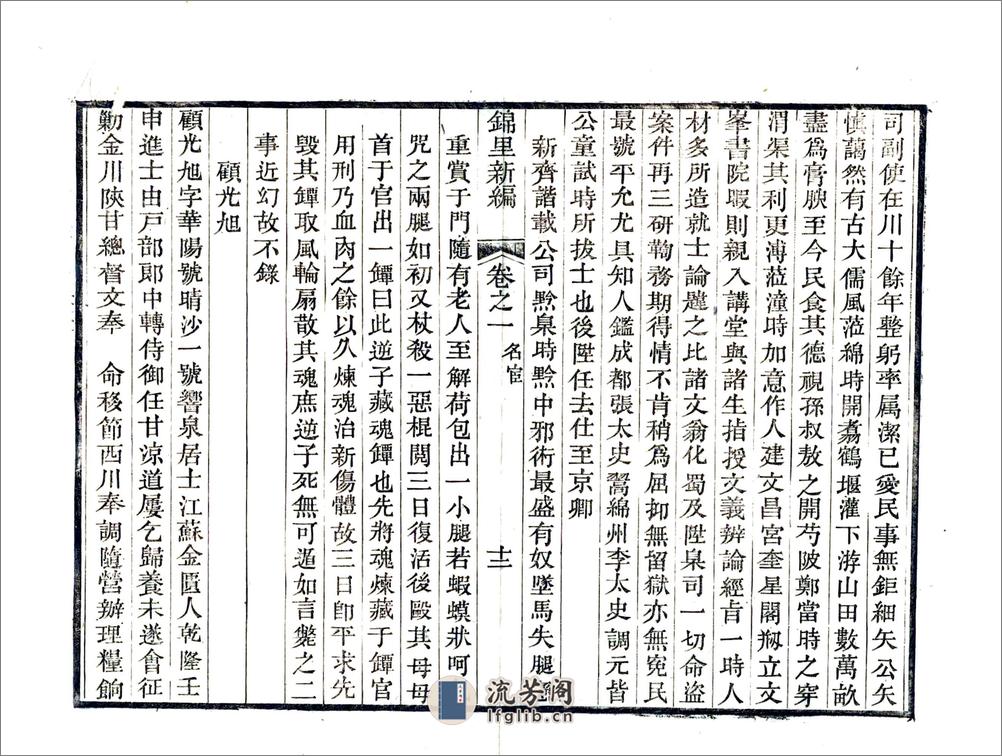 司副使在川十餘年整躬率属潔已愛民事無鉅細矢公矢
慎藹然有古大儒風蒞綿時開翥鶴堰灌下游山田數萬畝
盡為膏腴至今民食其德視孫叔敖之開芍陂鄭當時之穿
渭渠其利更溥蒞潼時加意作人建文昌宮奎星閣剏立文
峯書院暇則親入講堂與諸生指授文義辨論經旨一時人
材多所造就士論韙之比諸文翁化蜀及陞臬司一切命盜
案件再三研鞫務期得情不肯稍為屈抑無留獄亦無寃民
最號平允尤具知人鑑成都張太史鶿綿州李太史調元皆
公童試時所拔士也後陞任去仕至京卿
新齊諧載公司黔臬時黔中邪術最盛有奴墜馬失腿
錦里新編 卷之一 名宦 十二
重賞于門隨有老人至解荷包出一小腿若蝦蟆狀呵
咒之兩腿如初又杖殺一惡棍閱三日復活後毆其母母
首于官出一罈曰此逆子藏魂罈也先將魂煉藏于罈官
用刑乃血肉之餘以久煉魂治新傷體故三日卽平求先
毀其罈取風輪扇散其魂庶逆子死無可遁如言斃之二
事近幻故不錄
顧光旭
顧光旭字華陽號晴沙一號響泉居士江蘇金匱人乾隆壬
申進士由戸部郎中轉侍御任甘涼道屢乞歸養未遂會征
勦金川陝甘總督文奉 命移節西川奉調隨營辦理糧餉
流芳閣
lfglib.cn